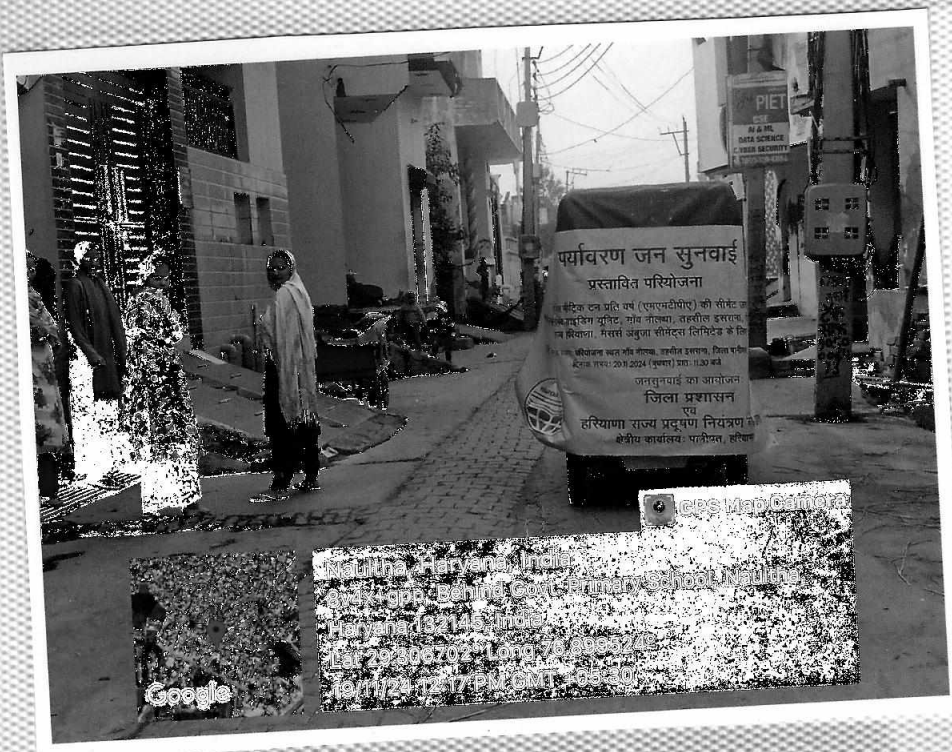 PIET
CSE
AI & ML
DATA SCIENCE
CYBER SECURITY
पर्यावरण जन सुनवाई
प्रस्तावित परियोजना
मैट्रिक टन प्रति वर्ष (एमएमटीपीए) की सीमेंट
ग्राइंडिंग यूनिट, गाँव नौलथा, तहसील इसराना,
मैसर्स अंबुजा सीमेंट्स लिमिटेड के
परियोजना स्थल गाँव नौलथा, तहसील इसराना, जिला
20.11.2024 (बुधवार) प्रातः 11.30 बजे
जनसुनवाई का आयोजन
जिला प्रशासन
एवं
हरियाणा राज्य प्रदूषण नियंत्रण
क्षेत्रीय कार्यालय: पानीपत,
GPS Map Camera
Naultha, Haryana, India
Behind Govt. Primary School, Naultha,
Haryana 132145, India
Lat 29.306702° Long 76.
19/11/24 12:17 PM GMT +05:30
Google